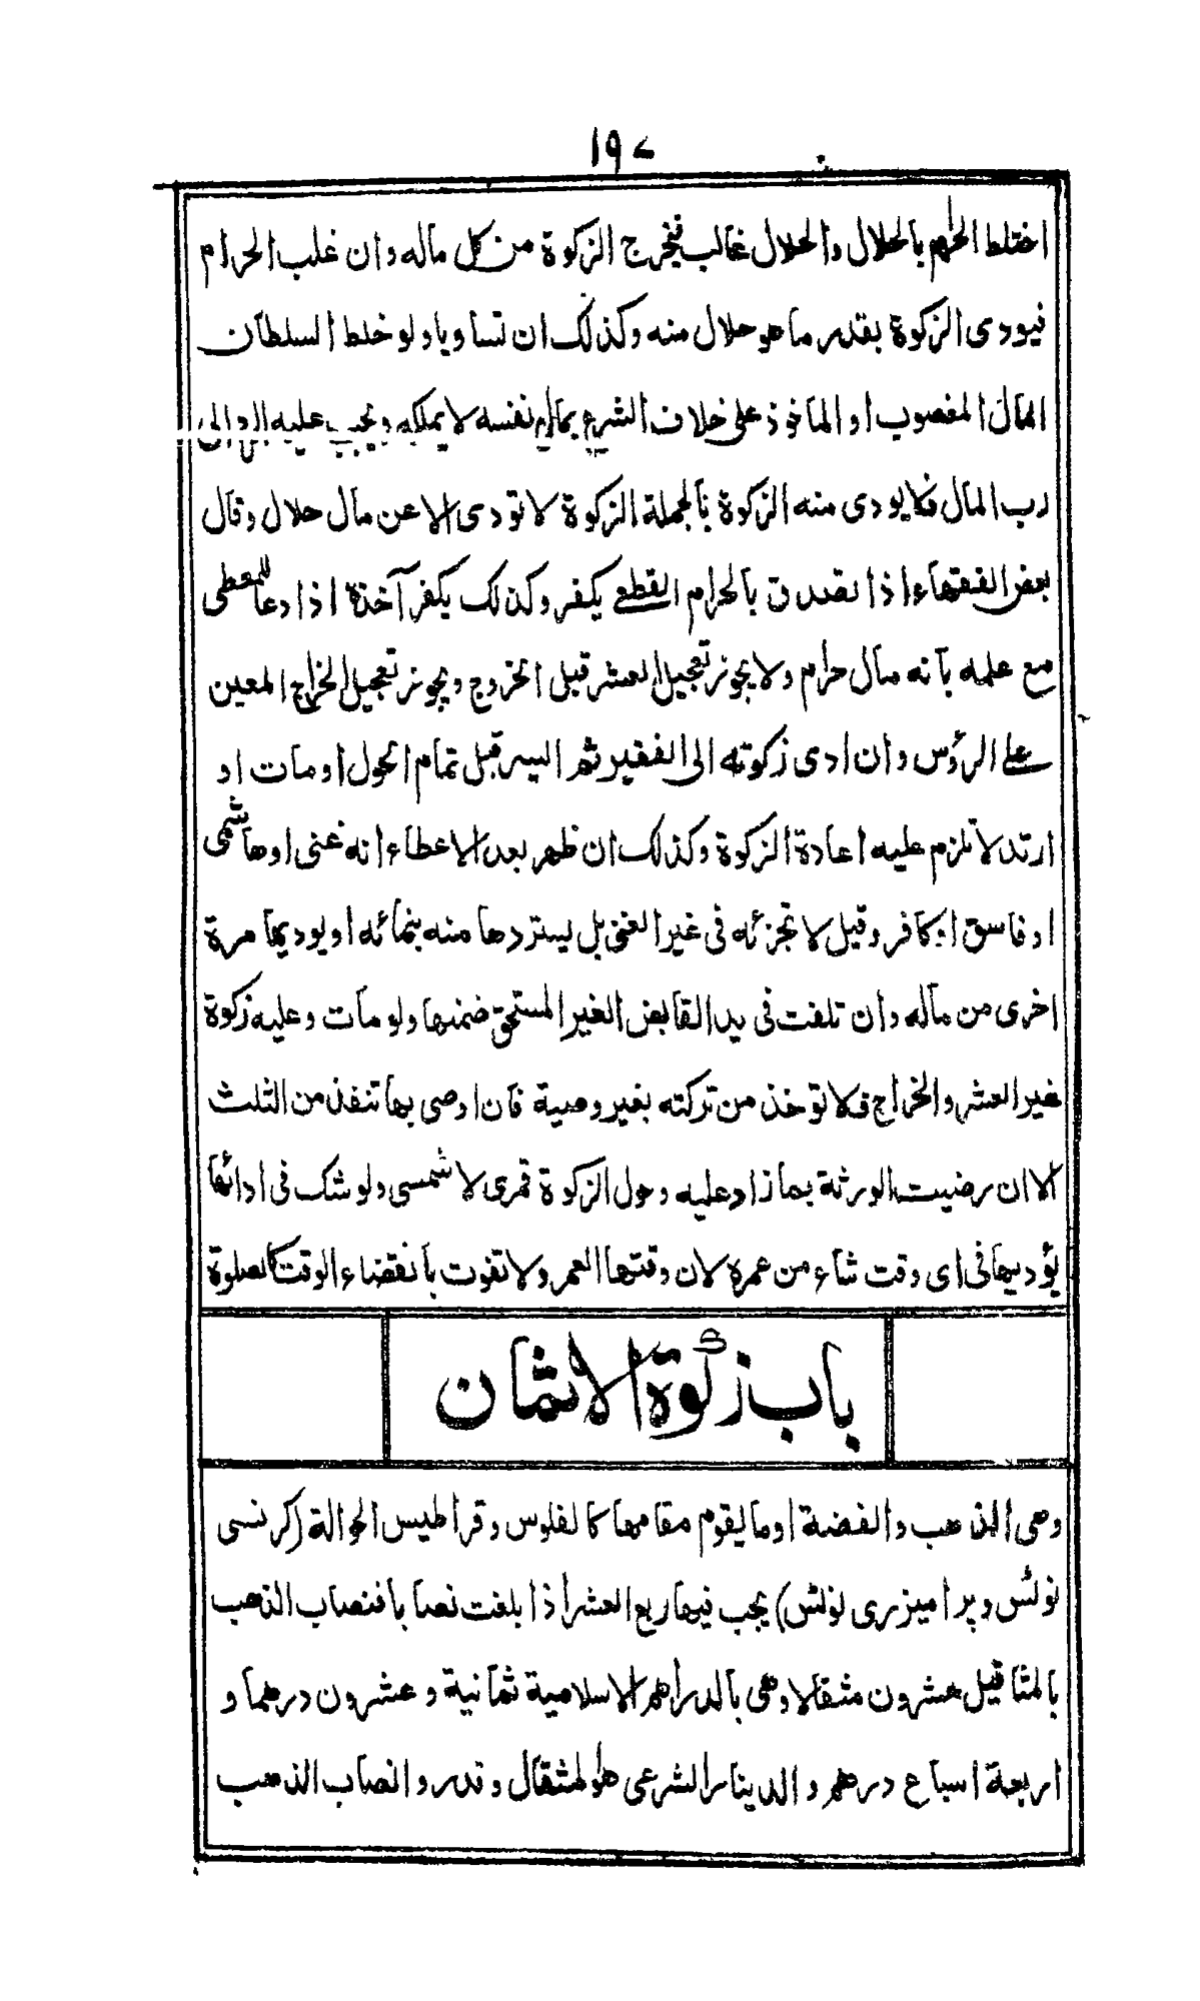 ١٩٧
اختلط الحرام بالحلال والحلال غالب فيخرج الزكوة من كل ماله وان غلب الحرام
فيودى الزكوة بقدر ما هو حلال منه وكذلك ان تساويا ولو خلط السلطان
المال المغصوب او الماخوذ على خلاف الشرع بمال نفسه لا يملكه ويجب عليه الرد الى
رب المال فلا يودى منه الزكوة بالجملة الزكوة لا تودى الا عن مال حلال وقال
بعض الفقهاء اذا تصدق بالحرام القطعى يكفر وكذلك يكفر آخذه اذا دعا للمعطى
مع علمه بانه مال حرام ولا يجوز تعجيل العشر قبل الخروج ويجوز تعجيل الخراج المعين
على الرؤس وان ادى زكوته الى الفقير ثم اليسر قبل تمام الحول او مات او
ارتد لا تلزم عليه اعادة الزكوة وكذلك ان ظهر بعد الاعطاء انه غنى او هاشمى
او فاسق او كافر وقيل لا تجزئه فى غير الغنى بل يستردها منه بنمائه او يوديها مرة
اخرى من ماله وان تلفت فى يد القابض الغير المستحق ضمنها ولو مات وعليه زكوة
غير العشر والخراج فلا توخذ من تركته بغير وصية فان اوصى بها تنفذ من الثلث
الا ان رضيت الورثة بما زاد عليه وحول الزكوة قمرى لا شمسى ولو شك فى ادائها
يؤديها فى اى وقت شاء من عمره لان وقتها العمر ولا تفوت بانقضاء الوقت كالصلوة
باب زكوة الاثمان
وهى الذهب والفضة او ما يقوم مقامها كالفلوس وقراطيس الحوالة (كرنسى
نوٹس و پرامیزری نوٹس) يجب فيها ربع العشر اذا بلغت نصابا فنصاب الذهب
بالمثاقيل عشرون مثقالا وهى بالدراهم الاسلامية ثمانية وعشرون درهما و
اربعة اسباع درهم والدينار الشرعى هو المثقال وقدروا نصاب الذهب